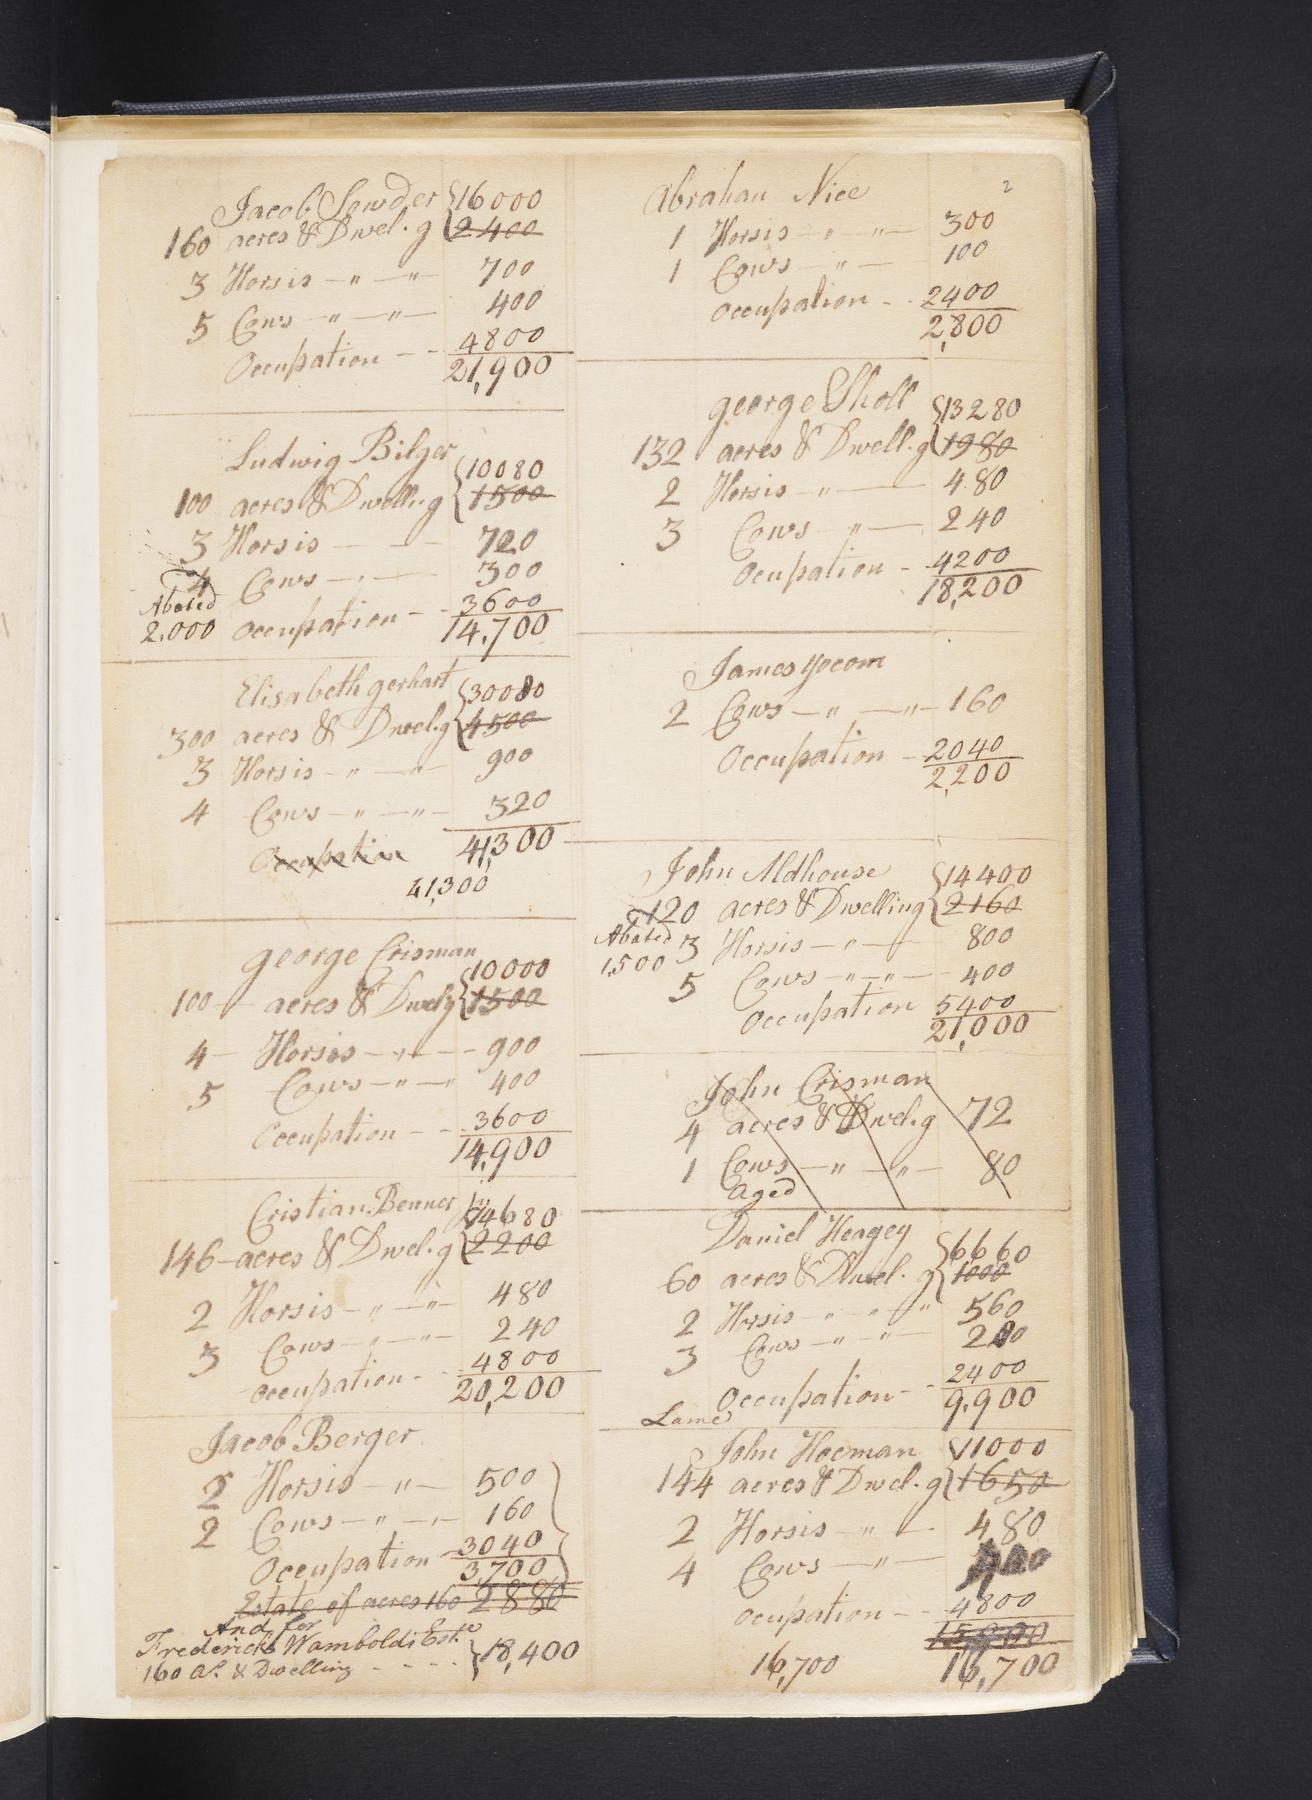 Jacob Lowder {16000
160 acres & Dwel.g {2400
3 Horsis — " — " — 700
5 Cows — " — " — 400
Occupation — - 4800
21,900
Ludwig Bilger {10080
100 acres & Dwelli.g {1500
3 Horsis — — 720
4 Cows — . — 300
Abated
2.000 occupation - - 3600
14.700
Elisabeth gerhart {30080
300 acres & Dwel.g {4500
3 Horsis — " — " 900
4 Cows — " — " — 320
Occupation 41,300
41,300
george Crisman {10000
100 — acres & Dwelg {1500
4 — Horsis — " — — 900
5 Cows — " — " 400
Occupation - - 3600
14,900
Cristian Benner {14680
146 — acres & Dwel.g {2200
2 Horsis — " — " — 480
3 Cows — " — " — 240
occupation - - 4800
20,200
Jacob Berger
2 Horsis — " — 500
2 Cows — " — " — 160
Occupation — 3040
3,700
Estate of acres 160 2880
And for
Fredericks Wambold Est.e
160 As. & Dwelling - - - - } 18,400
2
Abrahan Nice
1 Horsis — " — " — 300
1 Cows — " — 100
occupation - - 2400
2,800
george Sholl {13280
132 acres & Dwell.g {1980
2 Horsis — " — 480
3 Cows — " — 240
Ocupation - 4200
18,200
James yocom
2 Cows — " — " — 160
Occupation — 2040
2,200
John Aldhouse {14400
120 acres & Dwelling {2160
Abated 3 Horsis — " — 800
1,500
5 Cows — " — " — 400
Occupation 5400
21,000
John Crisman
4 acres & Dwel.g 72
1 Cows — " — " — 80
aged
Daniel Heagey {6660
60 acres & Dwel. g {1000
2 Horsis — " — " — " 560
3 Cows — " — " —
Occupation - - 2400
9,900
Lame
John Hoeman {11000
144 acres & Dwel.g {1650
2 Horsis — " — 480
4 Cows — " —
Ocupation - - 4800
16,700 16,700